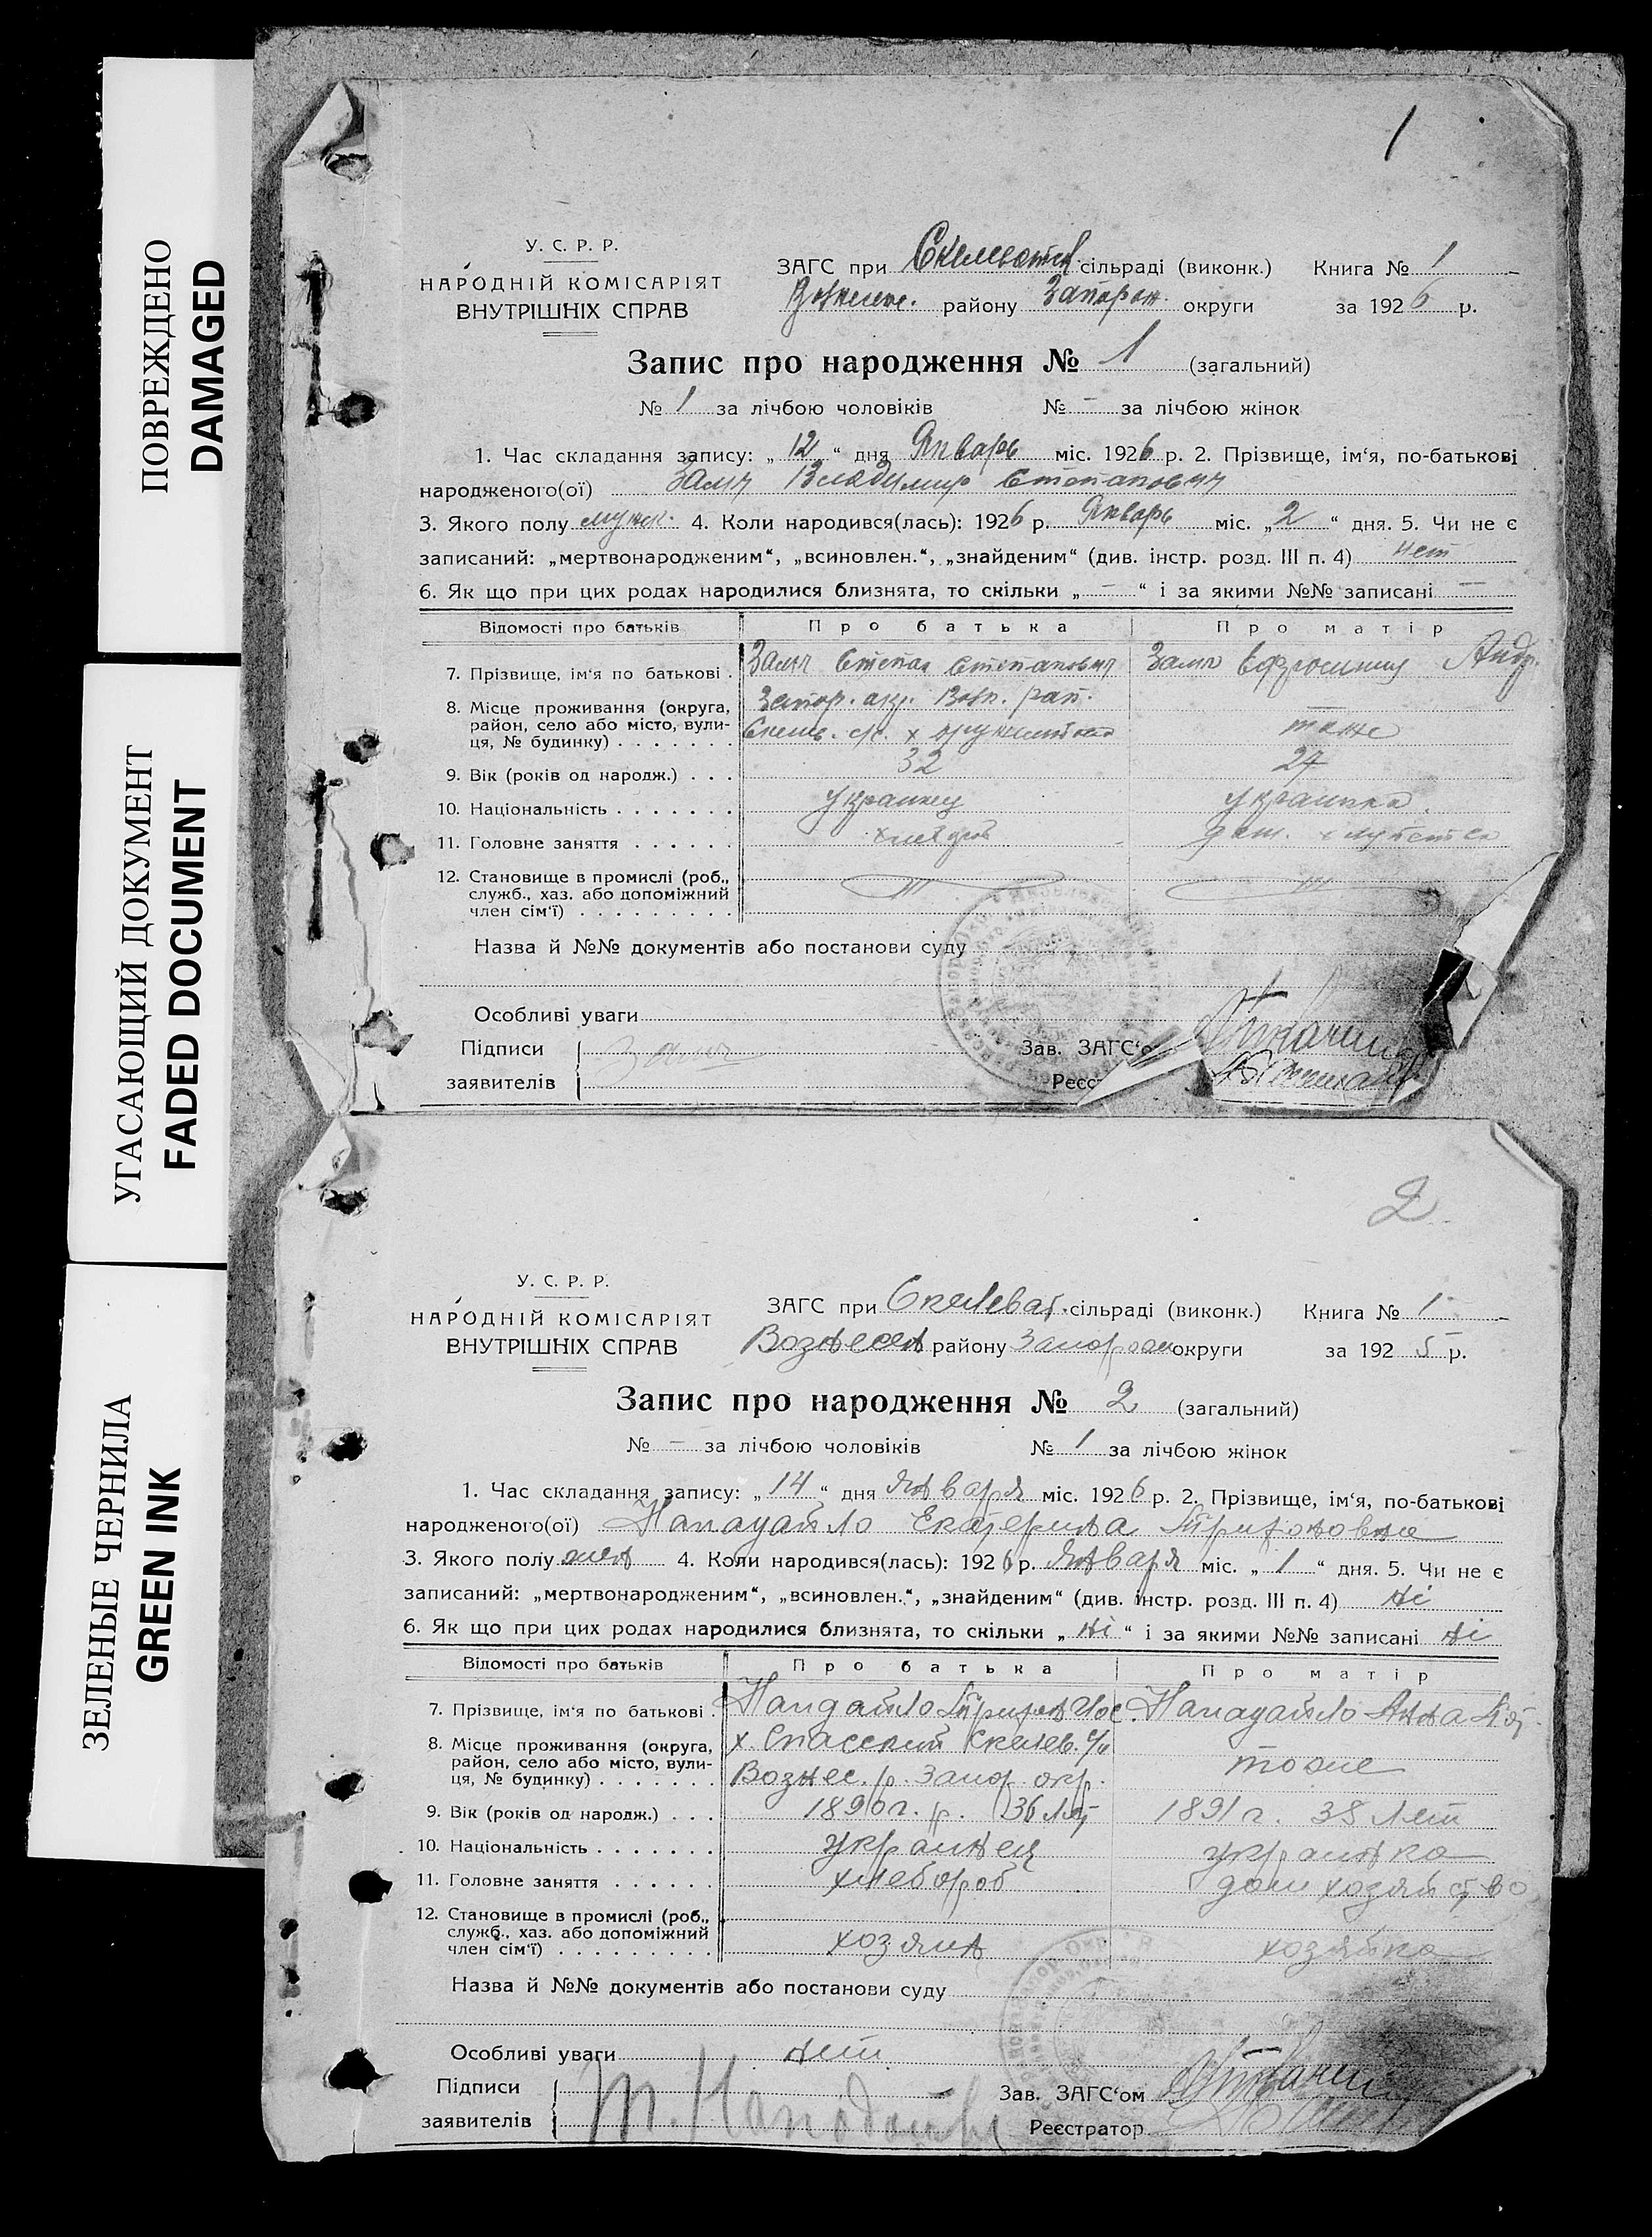 ПОВРЕЖДЕНО
DAMAGED
УГАСАЮЩИЙ ДОКУМЕНТ
FADED DOCUMENT
ЗЕЛЕНЫЕ ЧЕРНИЛА
GREEN INK
1
У. С. Р. Р.
НАРОДНІЙ КОМІСАРІЯТ
ВНУТРІШНІХ СПРАВ
ЗАГС при сільраді (виконк.) Книга № 1
району Запорож. округи за 1926 р.
Запис про народження № 1 (загальний)
№ 1 за лічбою чоловіків № - за лічбою жінок
1. Час складання запису: „ 12 “ дня Январь міс. 1926 р. 2. Прізвище, ім‘я, по-батькові
народженого(ої) Владимир Степанович
3. Якого полу мужс. 4. Коли народився(лась): 1926 р. Январь міс. „ 2 “ дня. 5. Чи не є
записаний: „мертвонародженим“, „всиновлен.“, „знайденим“ (див. інстр. розд. III п. 4) нет
6. Як що при цих родах народилися близнята, то скільки „ - “ і за якими №№ записані —
Відомості про батьків Про батька Про матір
7. Прізвище, ім‘я по батькові . Степан Степанович Ефросиния Андр.
8. Місце проживання (округа, Запор. окр. Возн. рай.
район, село або місто, вули-
ця, № будинку) . . . . . . . тоже
9. Вік (років од народж.) . . . 32 27
10. Національність . . . . . . . украинец украинка.
11. Головне заняття . . . . . . хлебороб
12. Становище в промислі (роб.,
служб., хаз. або допоміжний
член сім‘ї) . . . . . . . . .
Назва й №№ документів або постанови суду
Особливі уваги
Підписи Зав. ЗАГС‘о
заявителів Реєс
2
У. С. Р. Р.
НАРОДНІЙ КОМІСАРІЯТ
ВНУТРІШНІХ СПРАВ
ЗАГС при Скелеват. сільраді (виконк.) Книга № 1
Вознесен району Запорож округи за 1925 р.
Запис про народження № 2 (загальний)
№ - за лічбою чоловіків № 1 за лічбою жінок
1. Час складання запису: „ 14 “ дня января міс. 1926 р. 2. Прізвище, ім‘я, по-батькові
народженого(ої) Нападайло Екатерина Трифоновна
3. Якого полу жен 4. Коли народився(лась): 1926 р. января міс. „ 1 “ дня. 5. Чи не є
записаний: „мертвонародженим“, „всиновлен.“, „знайденим“ (див. інстр. розд. III п. 4) ні
6. Як що при цих родах народилися близнята, то скільки „ ні “ і за якими №№ записані ні
Відомості про батьків Про батька Про матір
7. Прізвище, ім‘я по батькові . Трифон Нападайло Анна
8. Місце проживання (округа, х. Спасский Скелев. с/с
район, село або місто, вули- тоже
ця, № будинку) . . . . . . . Вознес. р. Запор. окр.
9. Вік (років од народж.) . . . 1890 г. р. 36 лет 1891 г. 38 лет
10. Національність . . . . . . . украинец украинка
11. Головне заняття . . . . . . хлебороб дом хозяйство
12. Становище в промислі (роб.,
служб., хаз. або допоміжний
член сім‘ї) . . . . . . . . . хозяин хозяйка
Назва й №№ документів або постанови суду
Особливі уваги нет
Підписи Зав. ЗАГС‘ом
заявителів Реєстратор